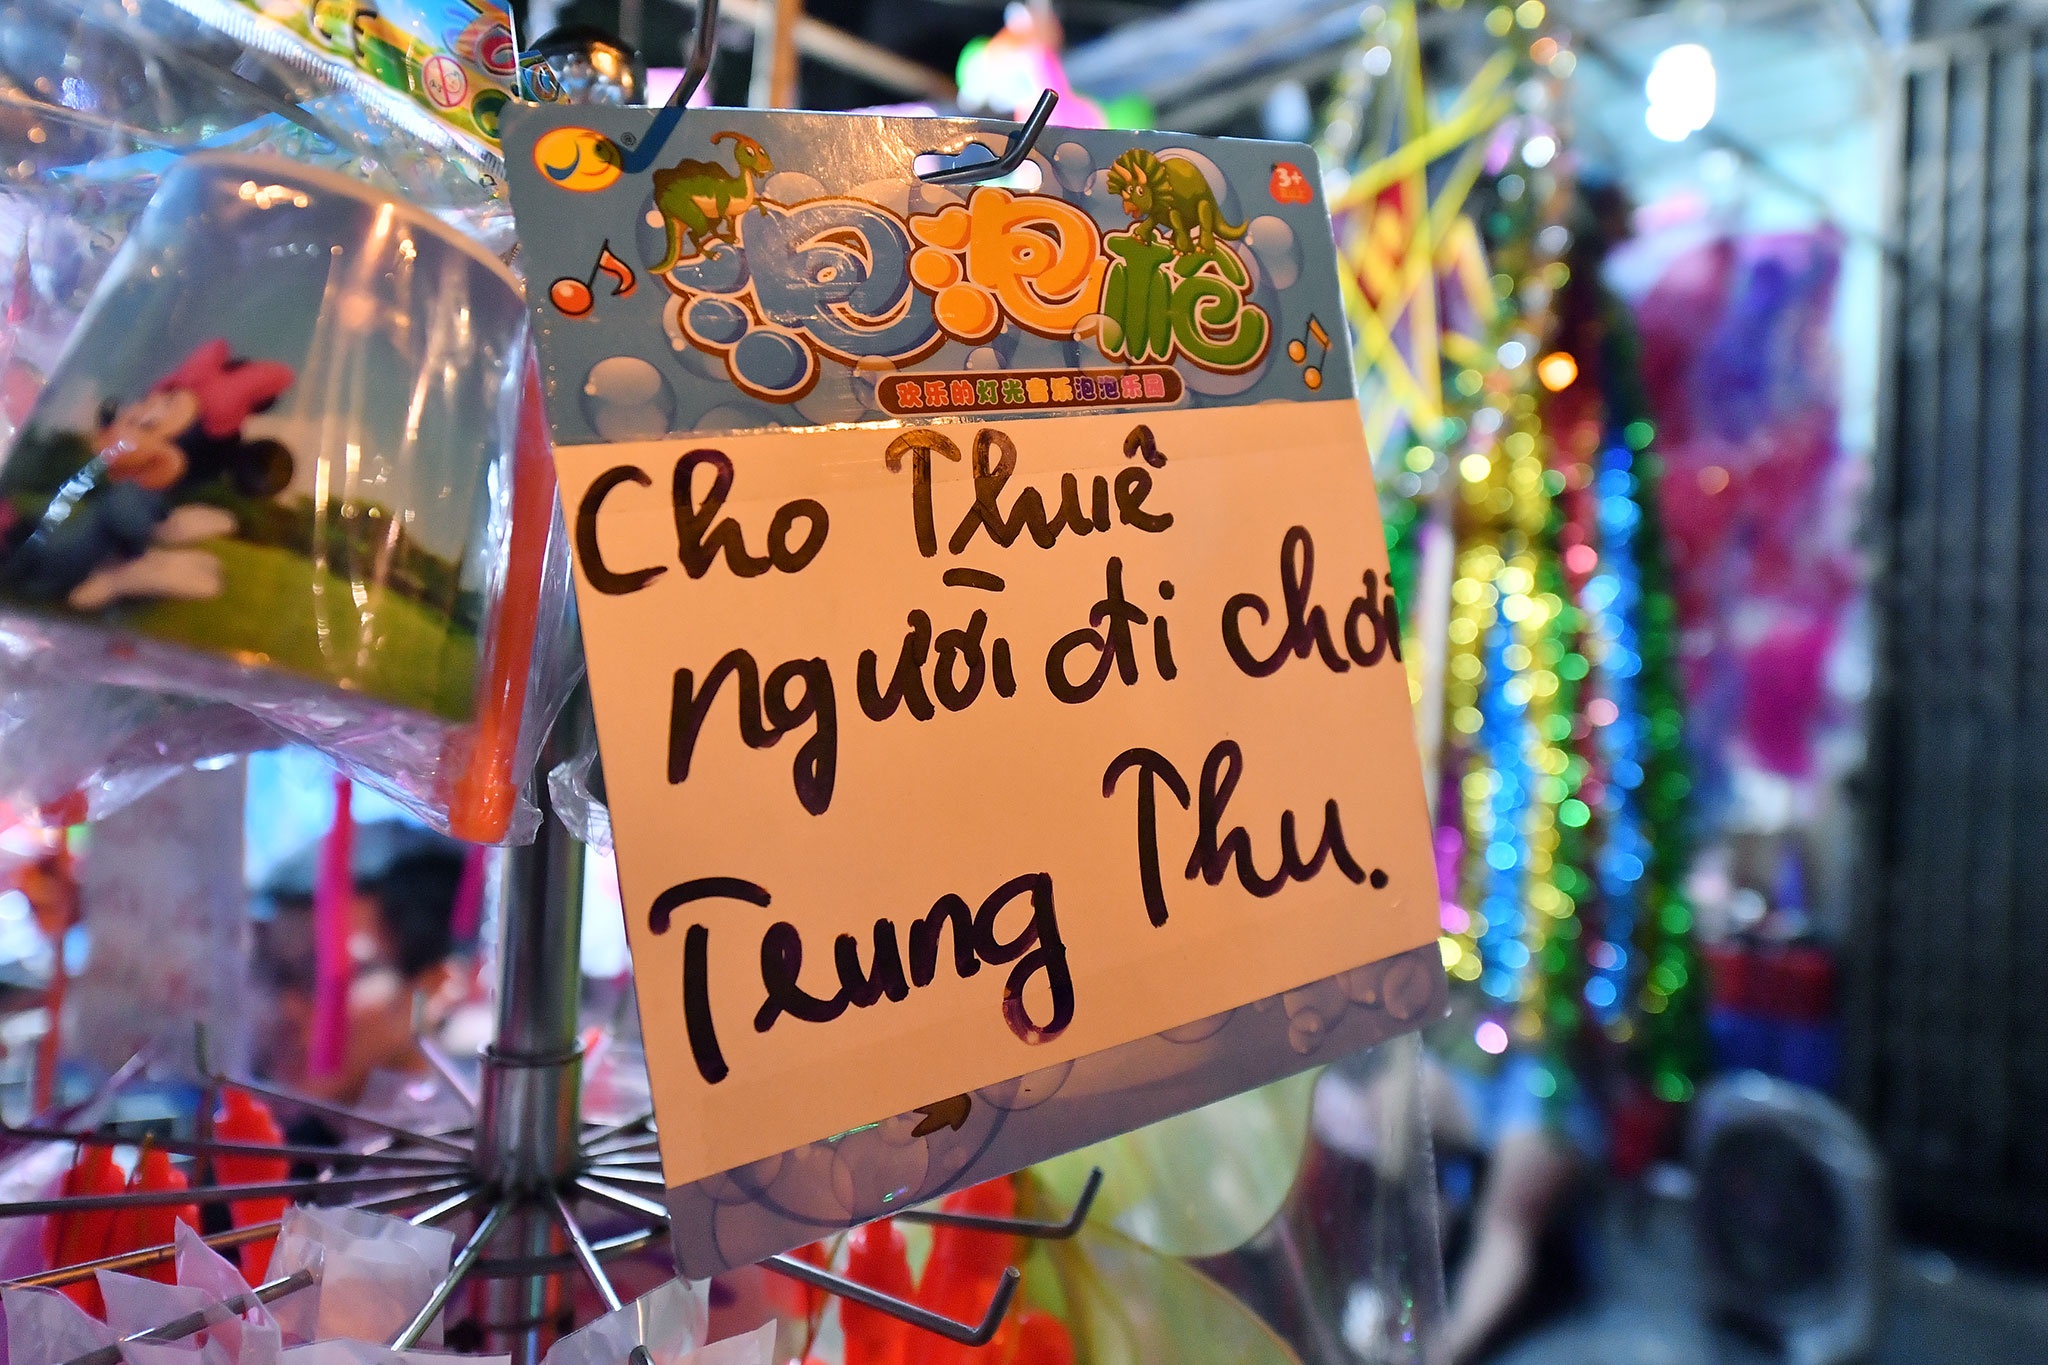 3+
泡泡枪
欢乐的灯光音乐泡泡乐园
Cho Thuê
người đi chơi
Trung Thu.